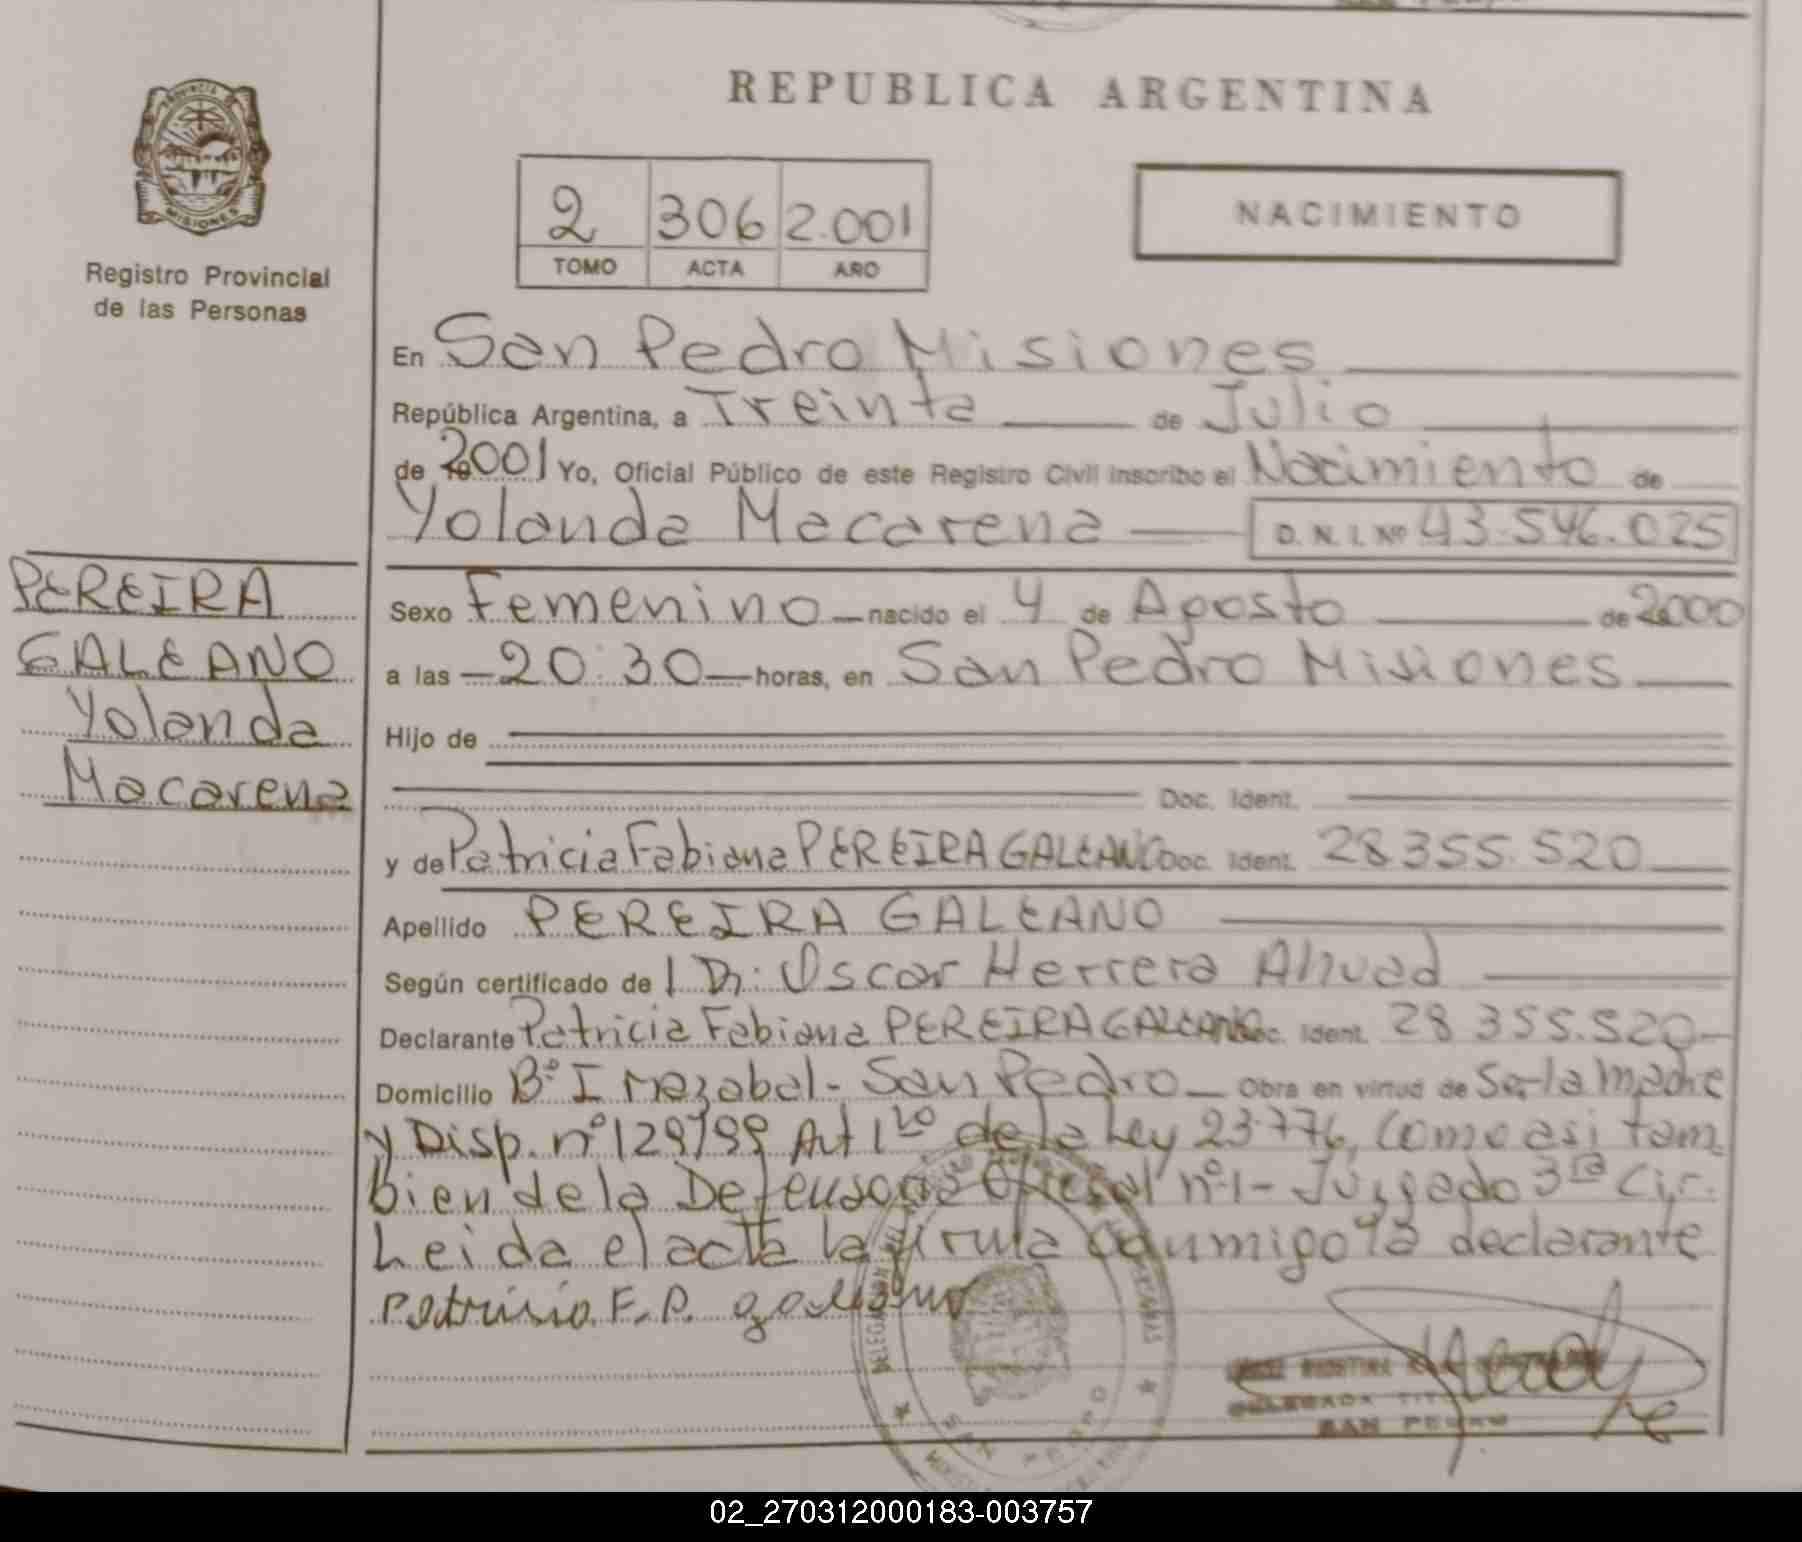 REPUBLICA ARGENTINA
PROVINCIA DE
MISIONES
Registro Provincial
de las Personas
2 306 2.001
TOMO ACTA AÑO
NACIMIENTO
En San Pedro Misiones
República Argentina, a Treinta de Julio
de 2001 Yo, Oficial Público de este Registro Civil inscribo el Nacimiento de
Yolanda Macarena D.N.I. Nº 43.546.025
PEREIRA
GALEANO
Yolanda
Macarena
Sexo Femenino nacido el 4 de Agosto de 2000
a las 20:30 horas, en San Pedro Misiones
Hijo de
Doc. Ident.
y de Patricia Fabiana PEREIRA GALEANO Doc. Ident. 28355.520
Apellido PEREIRA GALEANO
Según certificado de Dr. Oscar Herrera Ahuad
Declarante Patricia Fabiana PEREIRA GALEANO Doc. Ident. 28 355.520
Domicilio Bº Irrazabal - San Pedro Obra en virtud de Ser la madre
y Disp. nº 129/99 Art 1ro de la Ley 23.776, Como asi tam
bien de la Defensoria Oficial nº1 - Juzgado 3ra Cir.
Leida el acta la firma conmigo la declarante
F. P. galeano
SAN PEDRO
SAN PEDRO
02_270312000183-003757